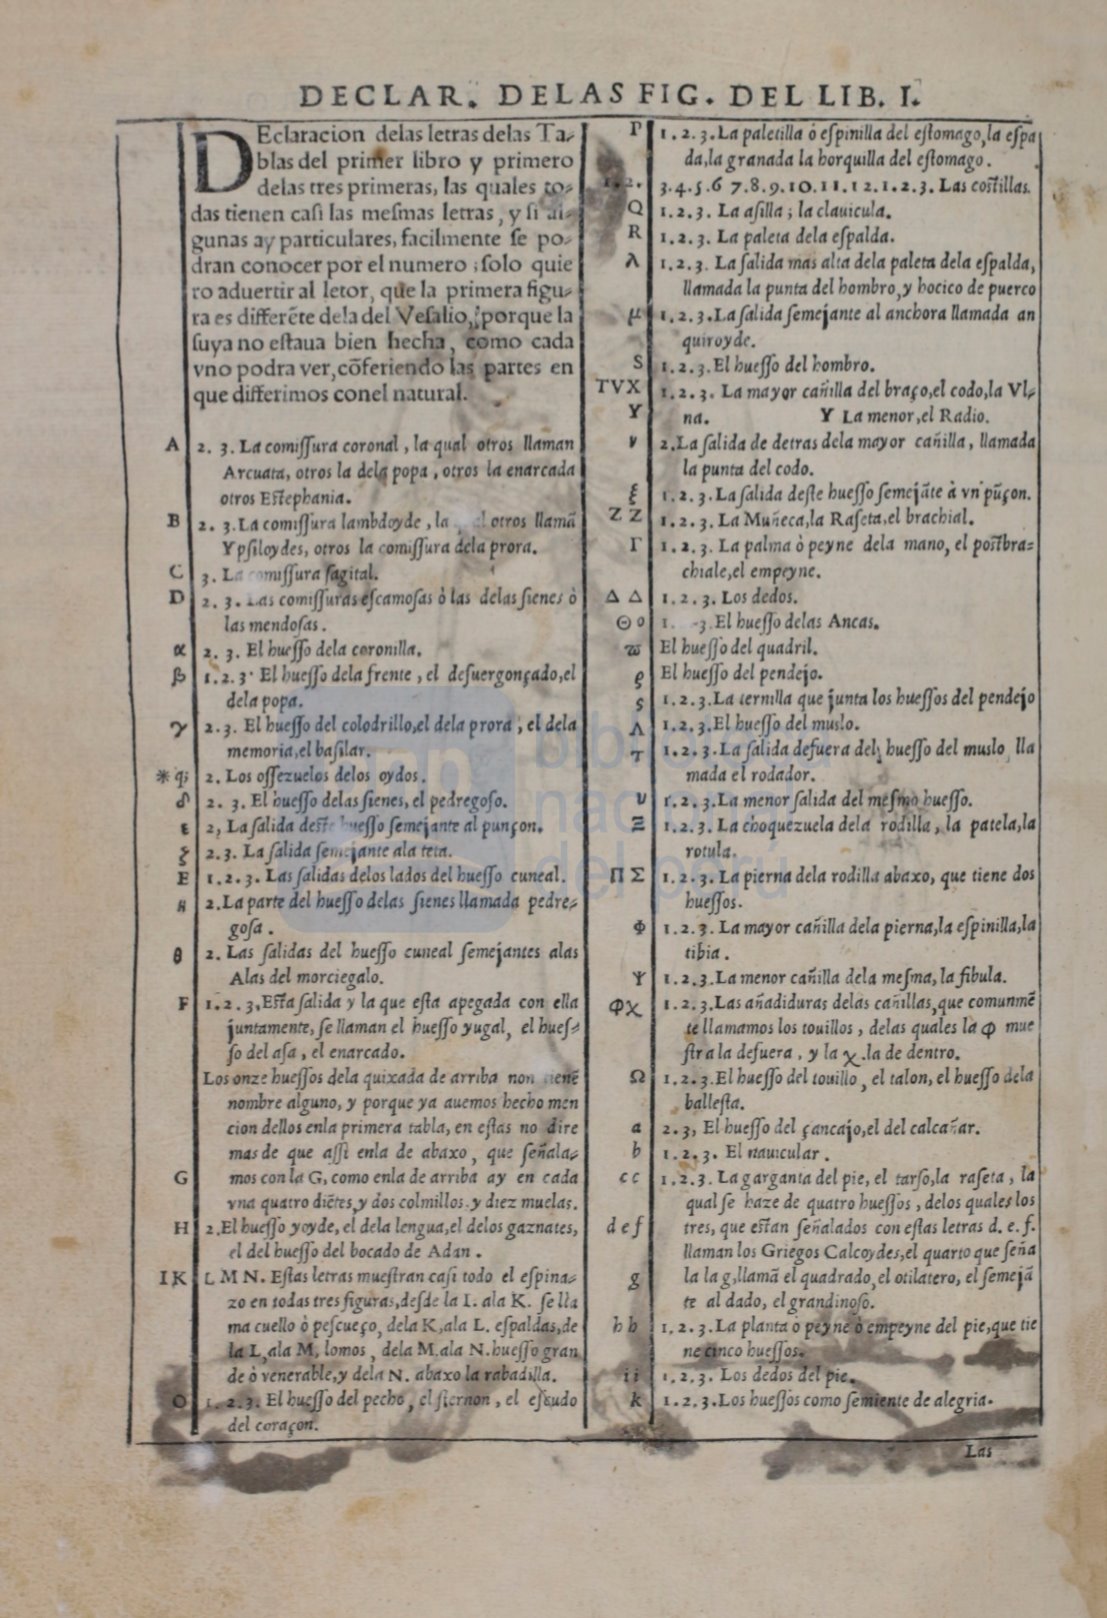 DECLAR. DELAS FIG. DEL LIB. I.
DEclaracion delas letras delas Ta-
blas del primer libro y primero
delas tres primeras, las quales to-
das tienen casi las mesmas letras, y si al-
gunas ay particulares, facilmente se po-
dran conocer por el numero; solo quie
ro aduertir al letor, que la primera figu-
ra es differẽte dela del Vesalio, porque la
suya no estaua bien hecha, como cada
vno podra ver, cõferiendo las partes en
que differimos conel natural.
A 2. 3. La comissura coronal, la qual otros llaman
Arcuata, otros la dela popa, otros la enarcada
otros Estephania.
B 2. 3. La comissura lambdoyde, la otros llamã
Ypsiloydes, otros la comissura dela prora.
C 3. La comissura sagital.
D 2. 3. Las comissuras escamosas ò las delas sienes ò
las mendosas.
α 2. 3. El huesso dela coronilla.
β 1. 2. 3. El huesso dela frente, el desuergonçado, el
dela popa.
γ 2. 3. El huesso del colodrillo, el dela prora, el dela
memoria, el basilar.
* q; 2. Los ossezuelos delos oydos.
δ 2. 3. El huesso delas sienes, el pedregoso.
ε 2, La salida deste huesso semejante al punçon.
ξ 2. 3. La salida semejante ala teta.
E 1. 2. 3. Las salidas delos lados del huesso cuneal.
η 2. La parte del huesso delas sienes llamada pedre-
gosa.
θ 2. Las salidas del huesso cuneal semejantes alas
Alas del morciegalo.
F 1. 2. 3, Esta salida y la que esta apegada con ella
juntamente, se llaman el huesso yugal, el hues-
so del asa, el enarcado.
Los onze huessos dela quixada de arriba non tienẽ
nombre alguno, y porque ya auemos hecho men
cion dellos enla primera tabla, en estas no dire
mas de que assi enla de abaxo, que señala-
G mos con la G, como enla de arriba ay en cada
vna quatro diẽtes, y dos colmillos. y diez muelas.
H 2. El huesso yoyde, el dela lengua, el delos gaznates,
el del huesso del bocado de Adan.
I K L M N. Estas letras muestran casi todo el espina-
zo en todas tres figuras, desde la I. ala K. se lla
ma cuello ò pescueço, dela K, ala L. espaldas, de
la L, ala M, lomos, dela M. ala N. huesso gran
de ò venerable, y dela N. abaxo la rabadilla.
O 1. 2. 3. El huesso del pecho, el sternon, el escudo
del coraçon.
P 1. 2. 3. La paletilla ò espinilla del estomago, la espa
da, la granada la horquilla del estomago.
1. 2. 3. 4. 5. 6 7. 8. 9. 10. 11. 12. 1. 2. 3. Las costillas.
Q 1. 2. 3. La asilla; la clauicula.
R 1. 2. 3. La paleta dela espalda.
λ 1. 2. 3. La salida mas alta dela paleta dela espalda,
llamada la punta del hombro, y hocico de puerco
μ 1. 2. 3. La salida semejante al anchora llamada an
quiroyde.
S 1. 2. 3. El huesso del hombro.
TVX 1. 2. 3. La mayor cañilla del braço, el codo, la Vl-
Y na. Y La menor, el Radio.
ν 2. La salida de detras dela mayor cañilla, llamada
la punta del codo.
ξ 1. 2. 3. La salida deste huesso semejãte à vn pũçon.
Z Z 1. 2. 3. La Muñeca, la Raseta, el brachial.
Γ 1. 2. 3. La palma ò peyne dela mano, el postbra-
chiale, el empeyne.
Δ Δ 1. 2. 3. Los dedos.
Θ o 1. 3. El huesso delas Ancas.
ϖ El huesso del quadril.
ϱ El huesso del pendejo.
ς 1. 2. 3. La ternilla que junta los huessos del pendejo
Λ 1. 2. 3. El huesso del muslo.
τ 1. 2. 3. La salida defuera del huesso del muslo lla
mada el rodador.
υ 1. 2. 3. La menor salida del mesmo huesso.
Ξ 1. 2. 3. La choquezuela dela rodilla, la patela, la
rotula.
Π Σ 1. 2. 3. La pierna dela rodilla abaxo, que tiene dos
huessos.
Φ 1. 2. 3. La mayor cañilla dela pierna, la espinilla, la
tibia.
Ψ 1. 2. 3. La menor cañilla dela mesma, la fibula.
φχ 1. 2. 3. Las añadiduras delas cañillas, que comunmẽ
te llamamos los touillos, delas quales la φ mue
stra la defuera, y la χ. la de dentro.
Ω 1. 2. 3. El huesso del touillo, el talon, el huesso dela
ballesta.
a 2. 3, El huesso del çancajo, el del calcañar.
b 1. 2. 3. El nauicular.
c c 1. 2. 3. La garganta del pie, el tarso, la raseta, la
qual se haze de quatro huessos, delos quales los
d e f tres, que estan señalados con estas letras d. e. f.
llaman los Griegos Calcoydes, el quarto que seña
g la la g, llamã el quadrado, el otilatero, el semejã
te al dado, el grandinoso.
h h 1. 2. 3. La planta ò peyne ò empeyne del pie, que tie
ne cinco huessos.
i i 1, 2, 3. Los dedos del pie.
k 1. 2. 3. Los huessos como semiente de alegria.
Las
biblioteca
nacional
del perú